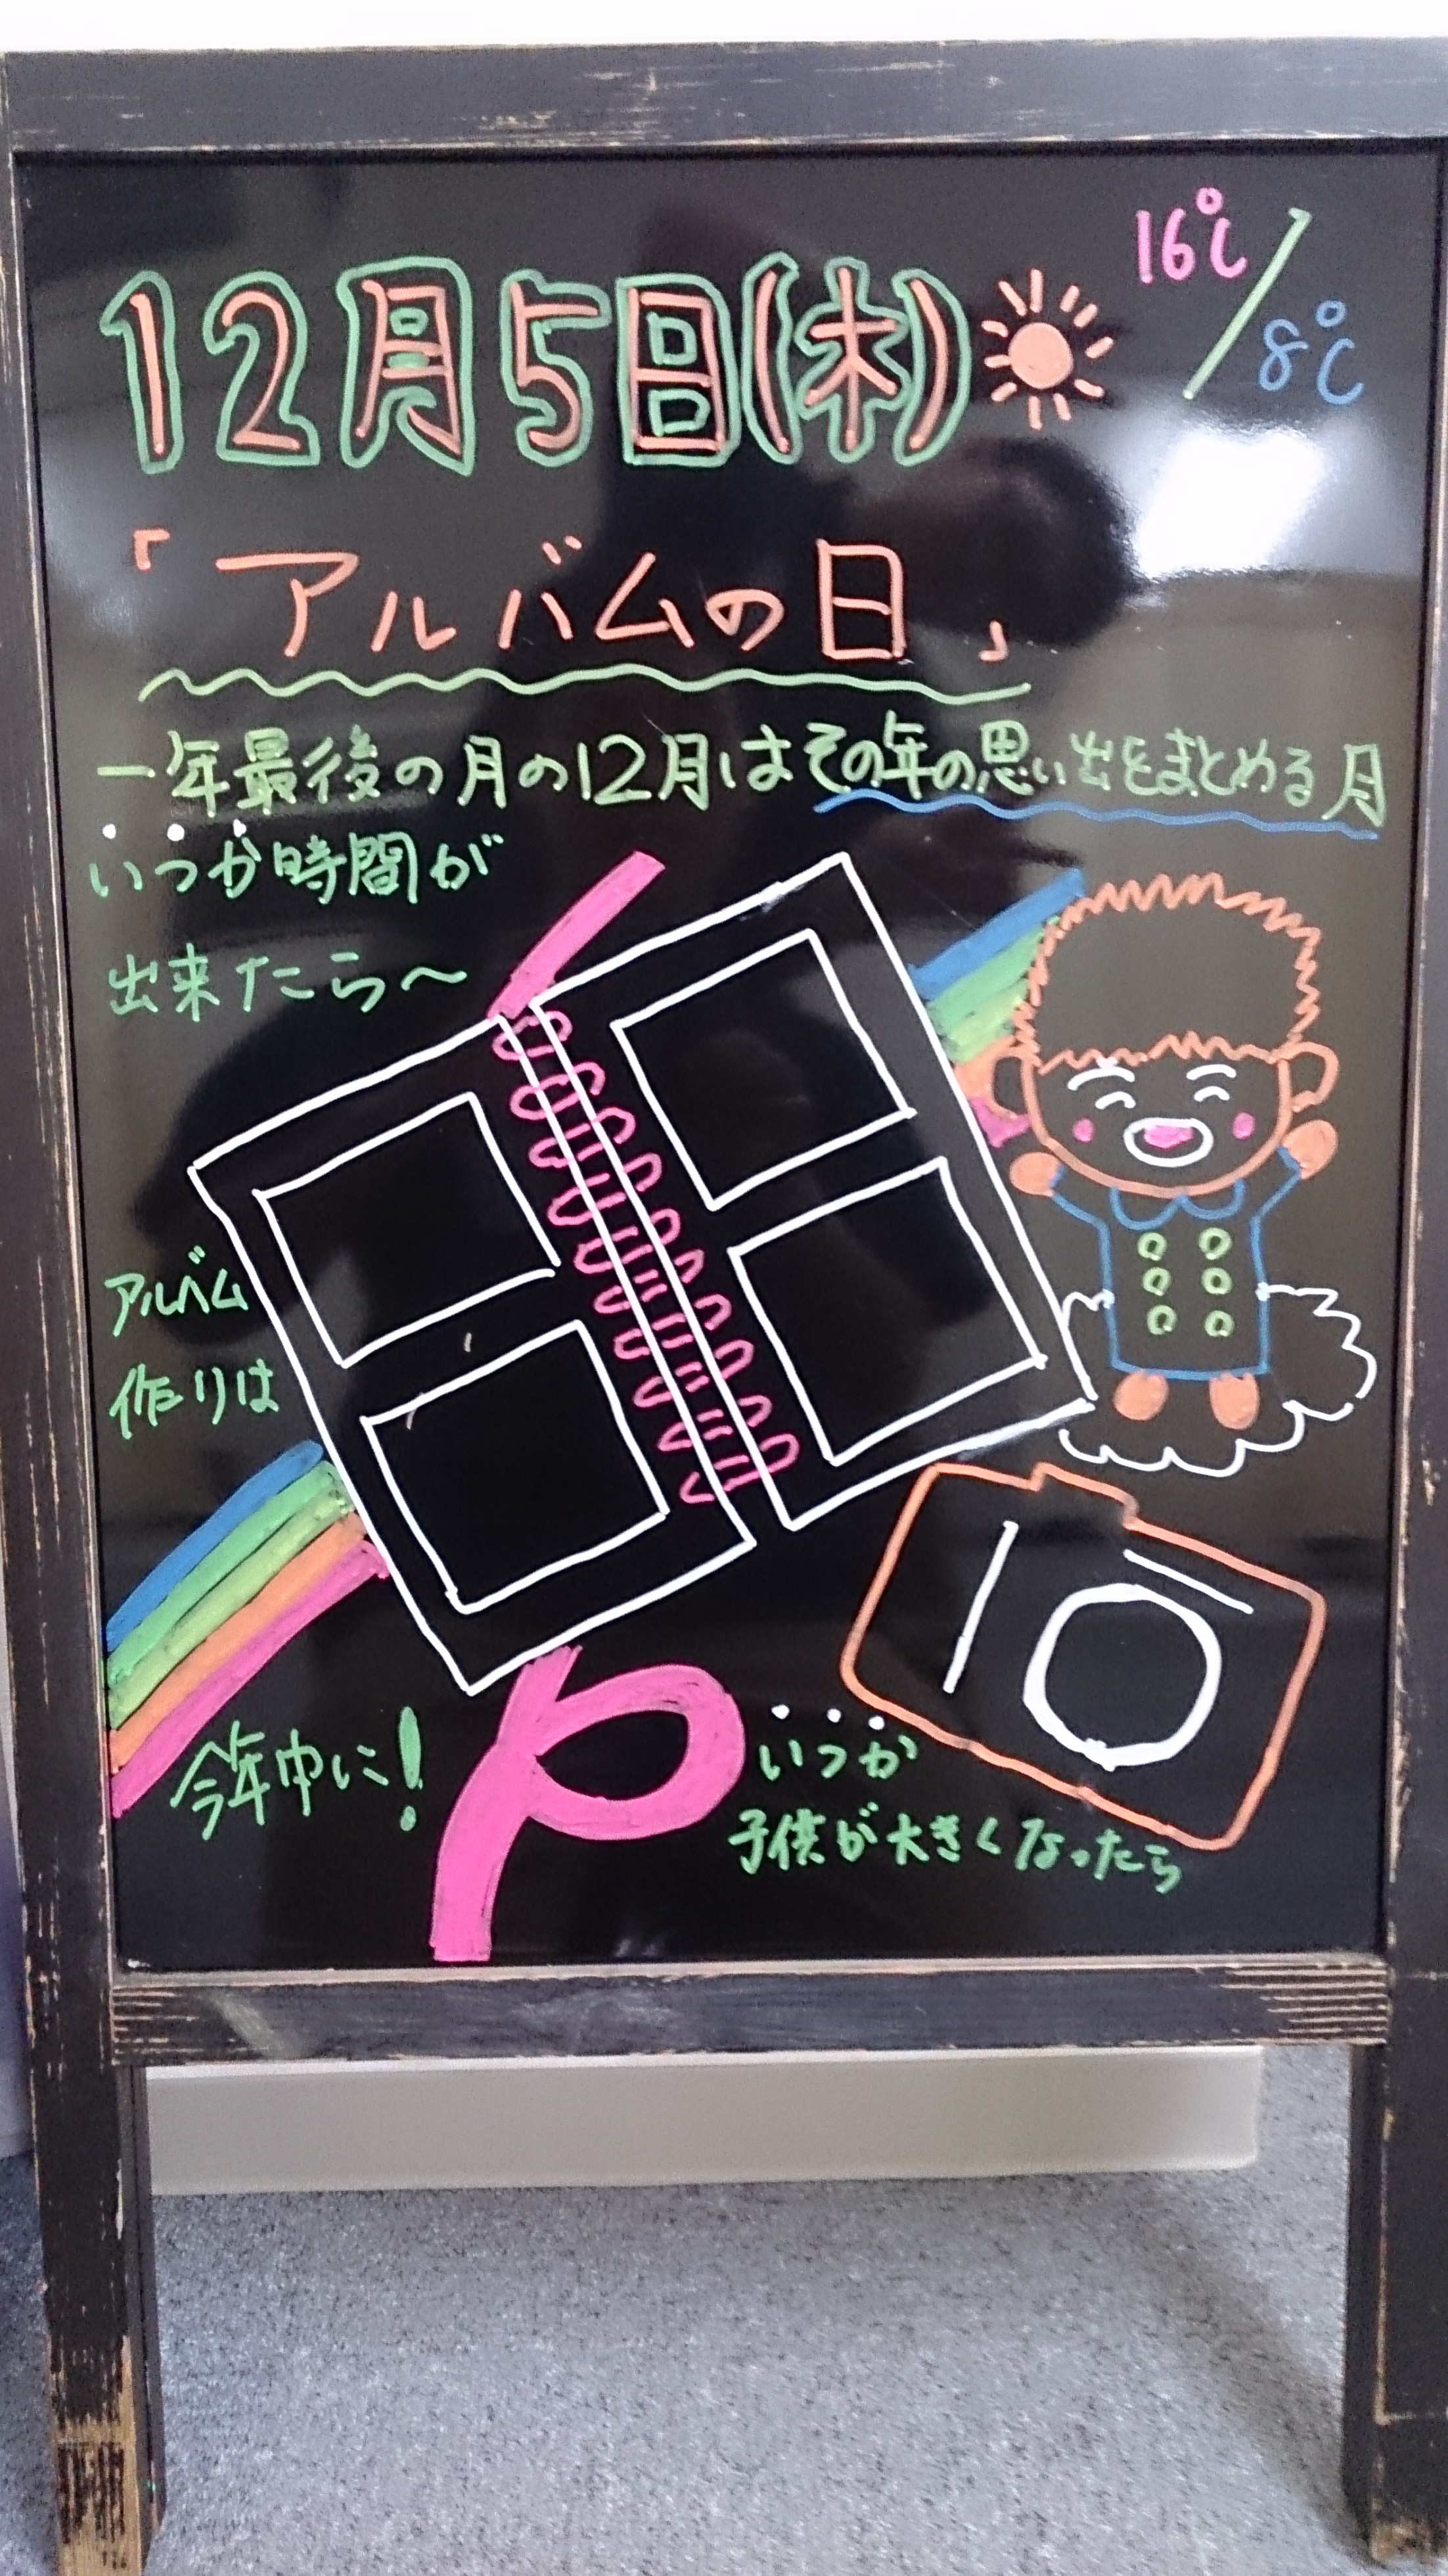 12月5日(木)
16℃/8℃
「アルバムの日」
一年最後の月の12月はその年の思い出をまとめる月
いつか時間が
出来たら〜
アルバム
作りは
今年中に!
いつか
子供が大きくなったら